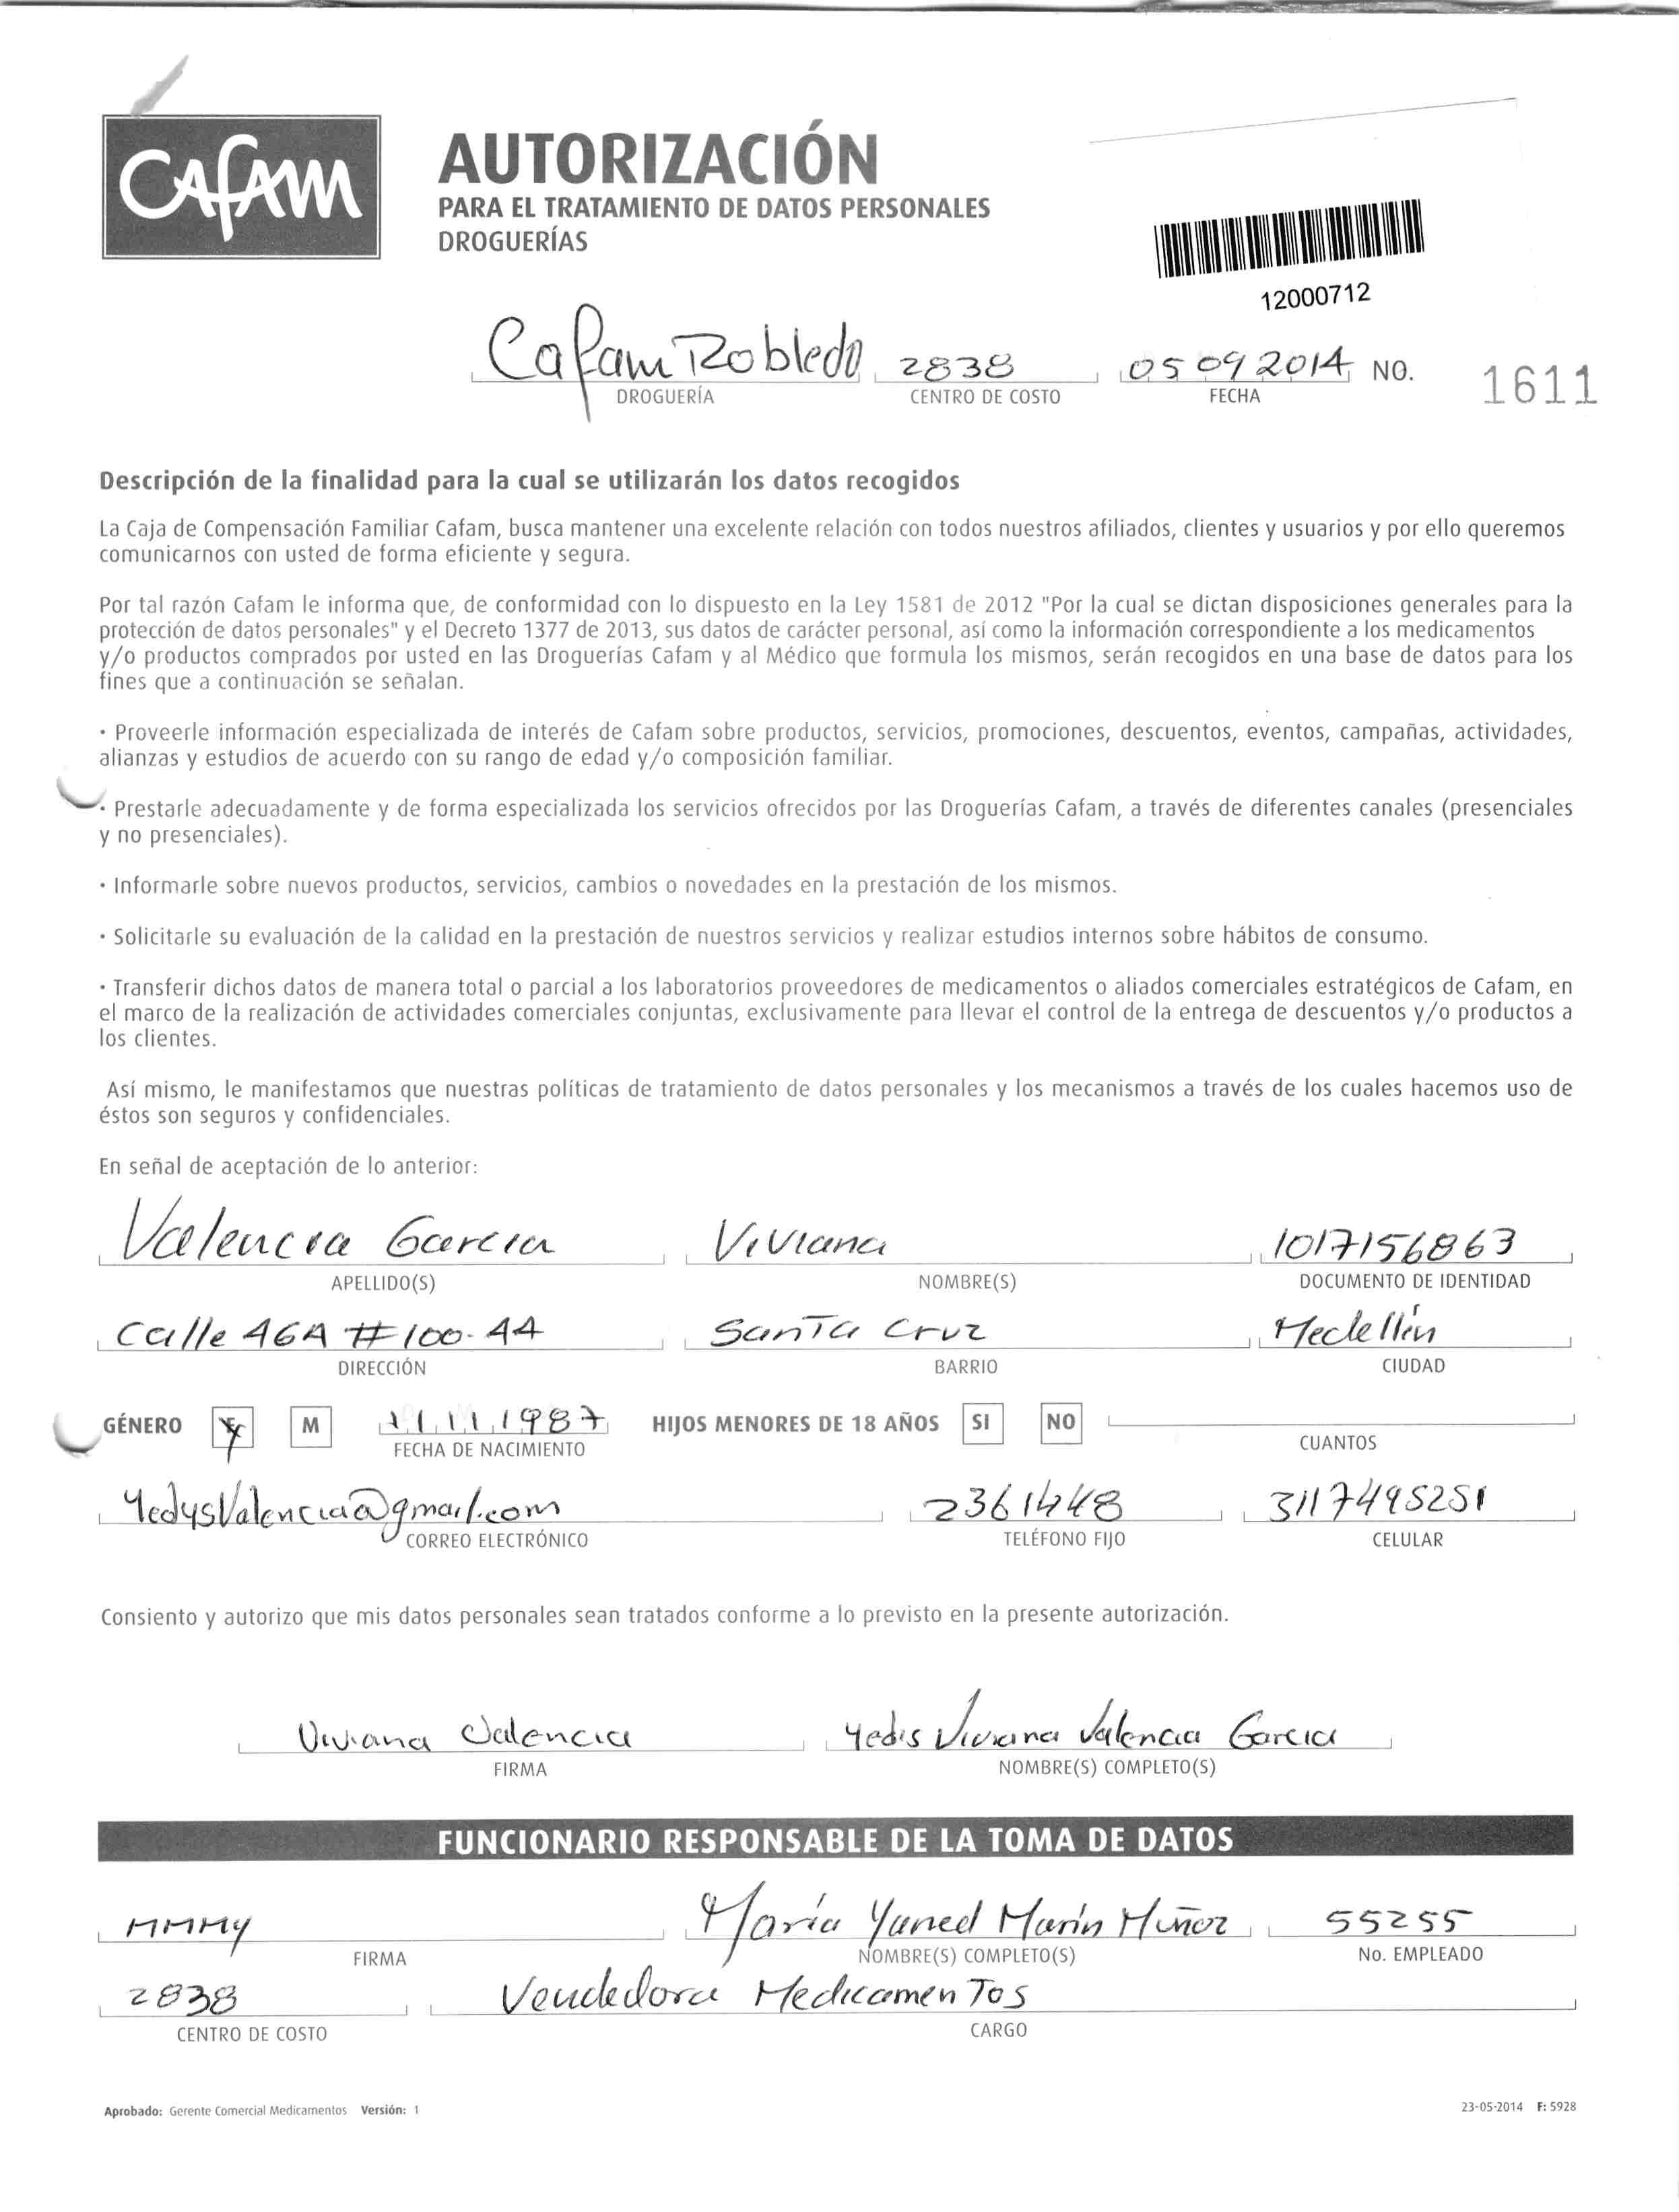 CAFAM
AUTORIZACIÓN
PARA EL TRATAMIENTO DE DATOS PERSONALES
DROGUERÍAS
12000712
Cafam Robledo 2838 05 09 2014 NO. 1611
DROGUERÍA CENTRO DE COSTO FECHA
Descripción de la finalidad para la cual se utilizarán los datos recogidos
La Caja de Compensación Familiar Cafam, busca mantener una excelente relación con todos nuestros afiliados, clientes y usuarios y por ello queremos
comunicarnos con usted de forma eficiente y segura.
Por tal razón Cafam le informa que, de conformidad con lo dispuesto en la Ley 1581 de 2012 "Por la cual se dictan disposiciones generales para la
protección de datos personales" y el Decreto 1377 de 2013, sus datos de carácter personal, así como la información correspondiente a los medicamentos
y/o productos comprados por usted en las Droguerías Cafam y al Médico que formula los mismos, serán recogidos en una base de datos para los
fines que a continuación se señalan.
· Proveerle información especializada de interés de Cafam sobre productos, servicios, promociones, descuentos, eventos, campañas, actividades,
alianzas y estudios de acuerdo con su rango de edad y/o composición familiar.
· Prestarle adecuadamente y de forma especializada los servicios ofrecidos por las Droguerías Cafam, a través de diferentes canales (presenciales
y no presenciales).
· Informarle sobre nuevos productos, servicios, cambios o novedades en la prestación de los mismos.
· Solicitarle su evaluación de la calidad en la prestación de nuestros servicios y realizar estudios internos sobre hábitos de consumo.
· Transferir dichos datos de manera total o parcial a los laboratorios proveedores de medicamentos o aliados comerciales estratégicos de Cafam, en
el marco de la realización de actividades comerciales conjuntas, exclusivamente para llevar el control de la entrega de descuentos y/o productos a
los clientes.
Así mismo, le manifestamos que nuestras políticas de tratamiento de datos personales y los mecanismos a través de los cuales hacemos uso de
éstos son seguros y confidenciales.
En señal de aceptación de lo anterior:
Valencia Garcia Viviana 1017156863
APELLIDO(S) NOMBRE(S) DOCUMENTO DE IDENTIDAD
Calle 46A # 100-44 Santa Cruz Medellín
DIRECCIÓN BARRIO CIUDAD
GÉNERO F M 11 11 1987 HIJOS MENORES DE 18 AÑOS SI NO
FECHA DE NACIMIENTO CUANTOS
YedysValencia@gmail.com 2361448 3117495251
CORREO ELECTRÓNICO TELÉFONO FIJO CELULAR
Consiento y autorizo que mis datos personales sean tratados conforme a lo previsto en la presente autorización.
Viviana Valencia Yedis Viviana Valencia Garcia
FIRMA NOMBRE(S) COMPLETO(S)
FUNCIONARIO RESPONSABLE DE LA TOMA DE DATOS
MMMy María Yaned Marín Muñoz 55255
FIRMA NOMBRE(S) COMPLETO(S) No. EMPLEADO
2838 Vendedora Medicamentos
CENTRO DE COSTO CARGO
Aprobado: Gerente Comercial Medicamentos Versión: 1 23-05-2014 F: 5928